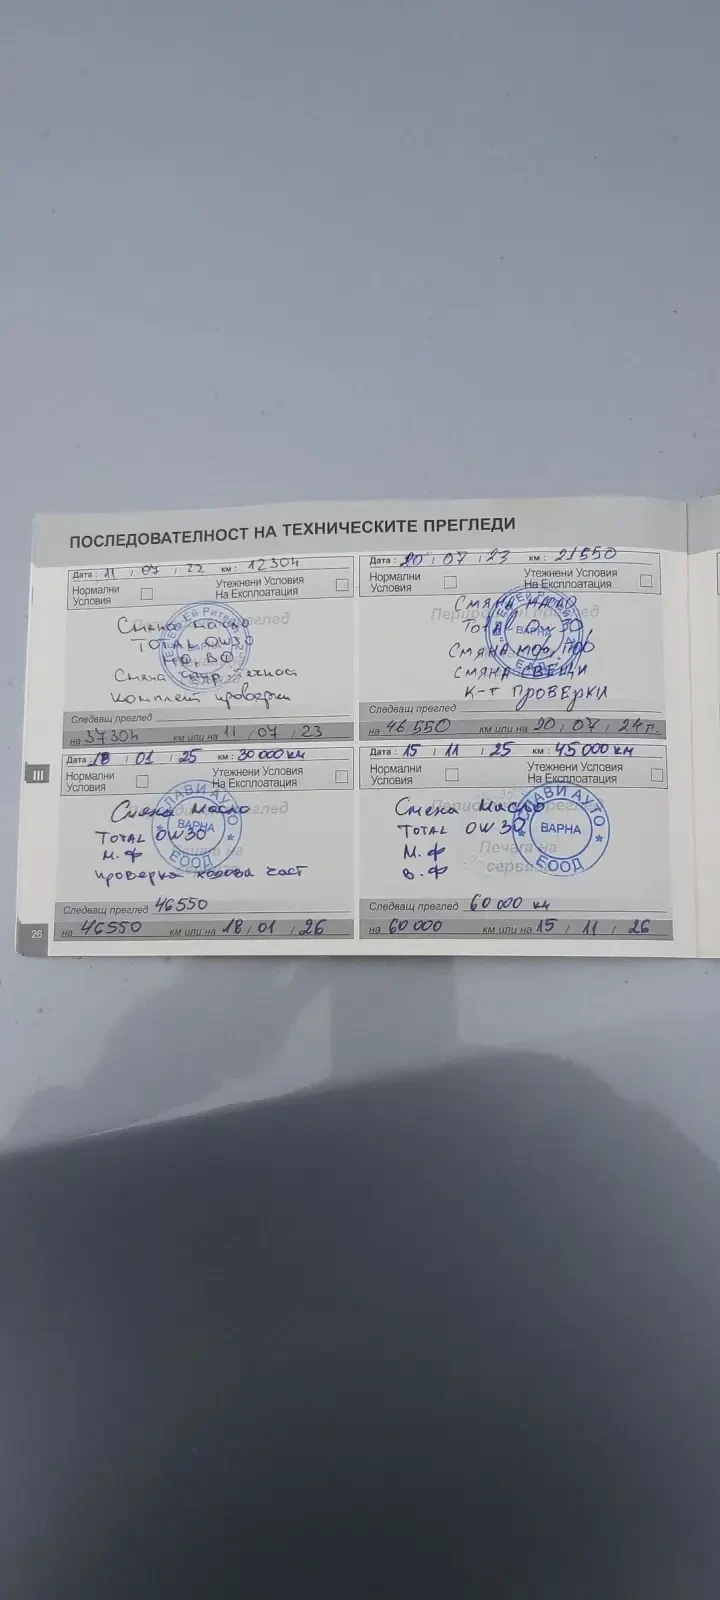 ПОСЛЕДОВАТЕЛНОСТ НА ТЕХНИЧЕСКИТЕ ПРЕГЛЕДИ
Дата: 11 / 07 / 22 км: 12304
Нормални Условия
Утежнени Условия На Експлоатация
Смяна масло
TOTAL 0W30
МФ, ВФ
Смяна спир. течност
Комплект проверки
ВАРНА
Следващ преглед
на 37304 км или на 11 / 07 / 23
Дата: 20 / 07 / 23 км: 21550
Нормални Условия
Утежнени Условия На Експлоатация
СМЯНА МАСЛО
Total 0w30
СМЯНА МФ,
СМЯНА СВЕЩИ
К-т ПРОВЕРКИ
ВАРНА
Следващ преглед
на 46550 км или на 20 / 07 / 24 г.
III
Дата: 18 / 01 / 25 км: 30 000 км
Нормални Условия
Утежнени Условия На Експлоатация
Смяна масло
TOTAL 0W30
М.ф
проверка ходова част
СЛАВИ АУТО
ВАРНА
ЕООД
Следващ преглед 46550
на 46550 км или на 18 / 01 / 26
Дата: 15 / 11 / 25 км: 45 000 км
Нормални Условия
Утежнени Условия На Експлоатация
Смяна масло
TOTAL 0W30
М.ф
в.ф
Печат на
СЛАВИ АУТО
ВАРНА
ЕООД
Следващ преглед 60 000 км
на 60 000 км или на 15 / 11 / 26
26